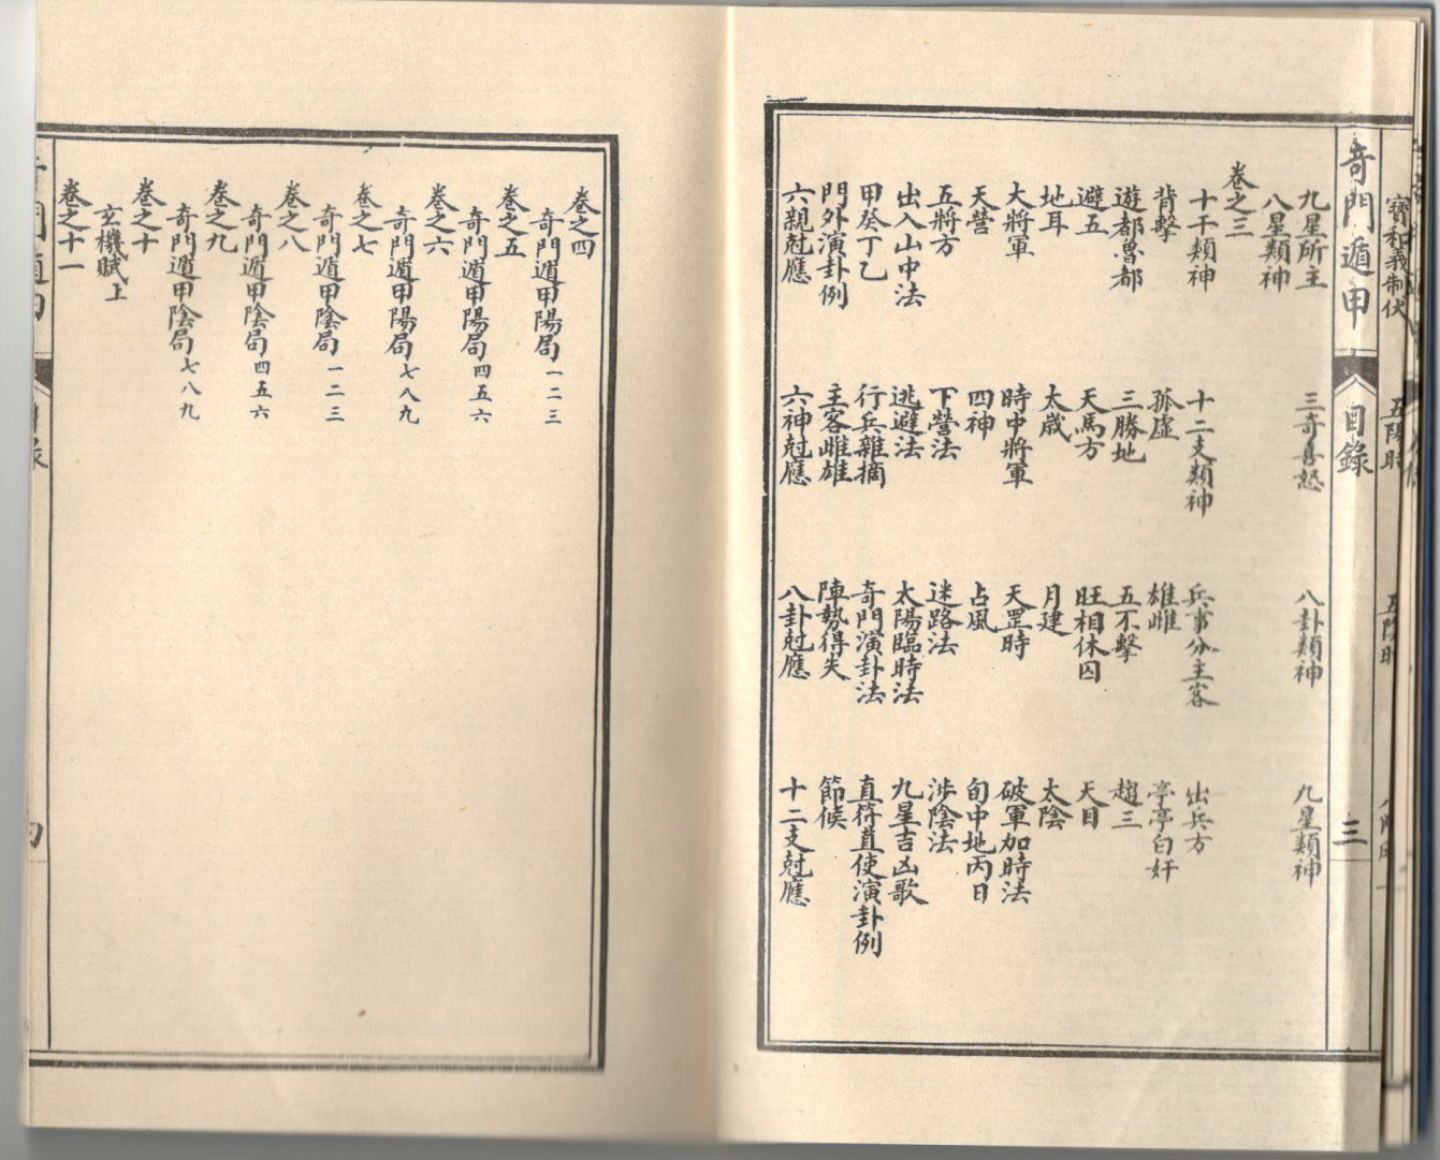 寶和義制伏
五陽時
奇門遁甲
目錄
三
九星所主 三奇喜怒 八卦類神 九星類神
八星類神
卷之三
十干類神 十二支類神 兵事分主客 出兵方
背擊 孤虛 雄雌 亭亭白奸
遊都魯都 三勝地 五不擊 趨三
避五 天馬方 旺相休囚 天目
地耳 太歲 月建 太陰
大將軍 時中將軍 天罡時 破軍加時法
天營 四神 占風 旬中地丙日
五將方 下營法 迷路法 涉陰法
出入山中法 逃避法 太陽臨時法 九星吉凶歌
甲癸丁乙 行兵雜摘 奇門演卦法 直符直使演卦例
門外演卦例 主客雌雄 陣勢得失 節候
六親尅應 六神尅應 八卦尅應 十二支尅應
卷之四
奇門遁甲陽局一二三
卷之五
奇門遁甲陽局四五六
卷之六
奇門遁甲陽局七八九
卷之七
奇門遁甲陰局一二三
卷之八
奇門遁甲陰局四五六
卷之九
奇門遁甲陰局七八九
卷之十
玄機賦上
卷之十一